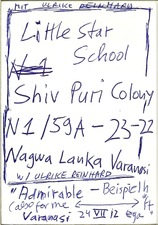 MIT ULRIKE REINHARD
Little Star
School
Shiv Puri Colony
N1/59A-23-22
Nagwa Lanka Varanasi
W/ ULRIKE REINHARD
"Admirable - Beispielh
(also for me
Varanasi 24 VII 12